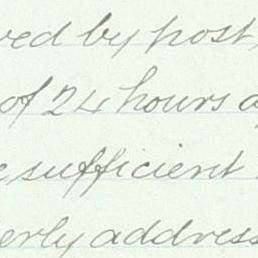 ved by post,
of 24 hours a
e sufficient
erly address